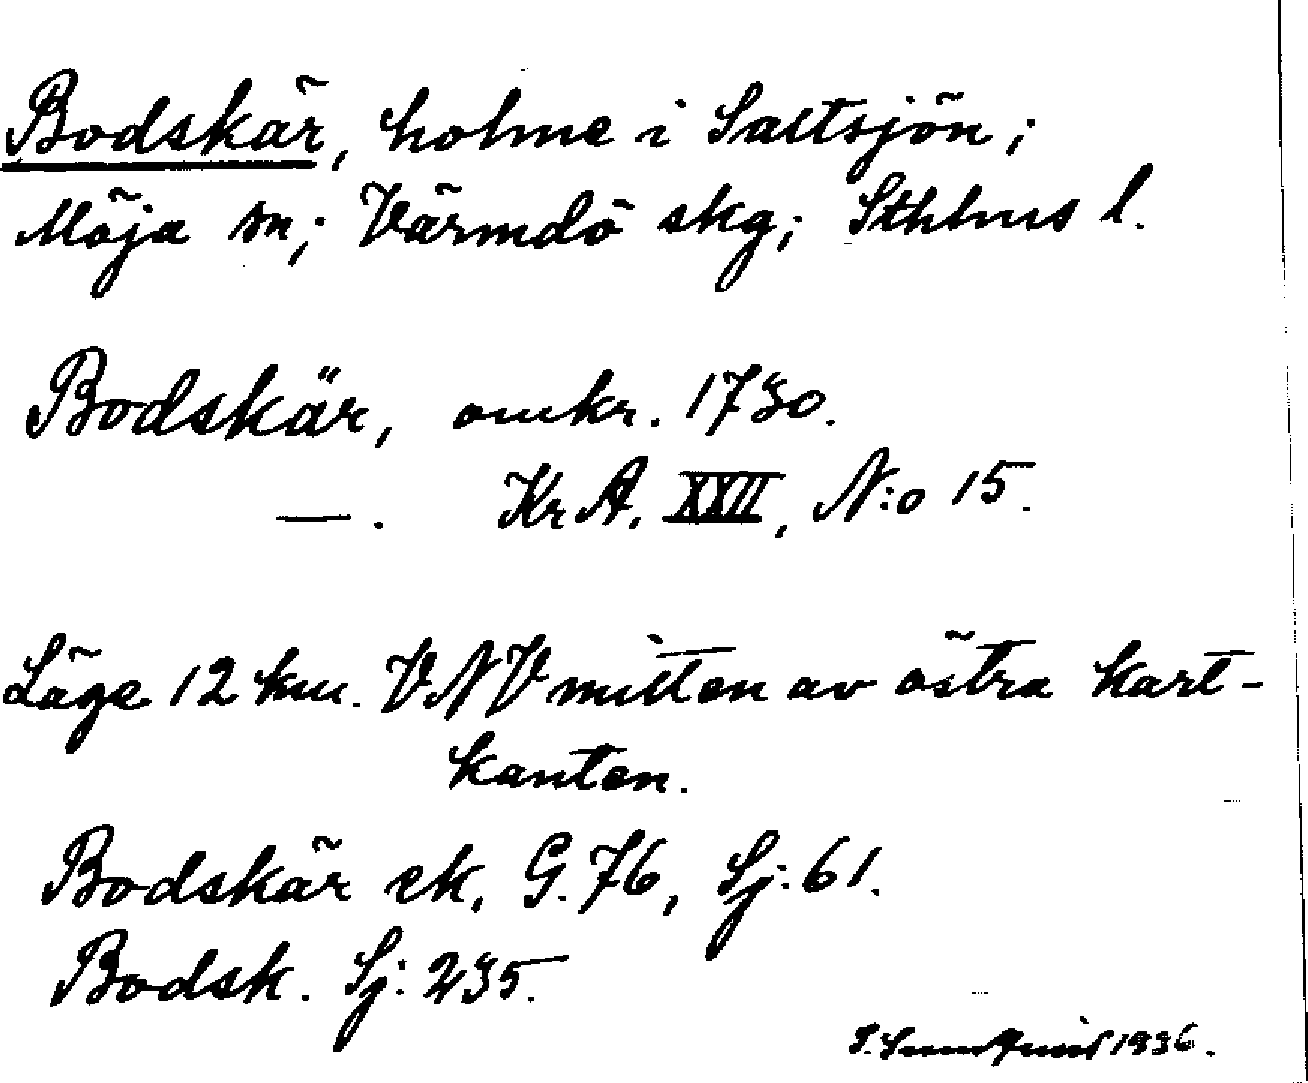 Bodskär, holme i Saltsjön;
Möja sn; Värmdö skg; Sthlms l.
Bodskär, omkr. 1730.
—. KrA, XXII, N:o 15.
Läge 12 km. VNV mitten av östra kart-
kanten.
Bodskär ek, G. 76, Sj: 61.
Bodsk. Sj: 235.
1936.